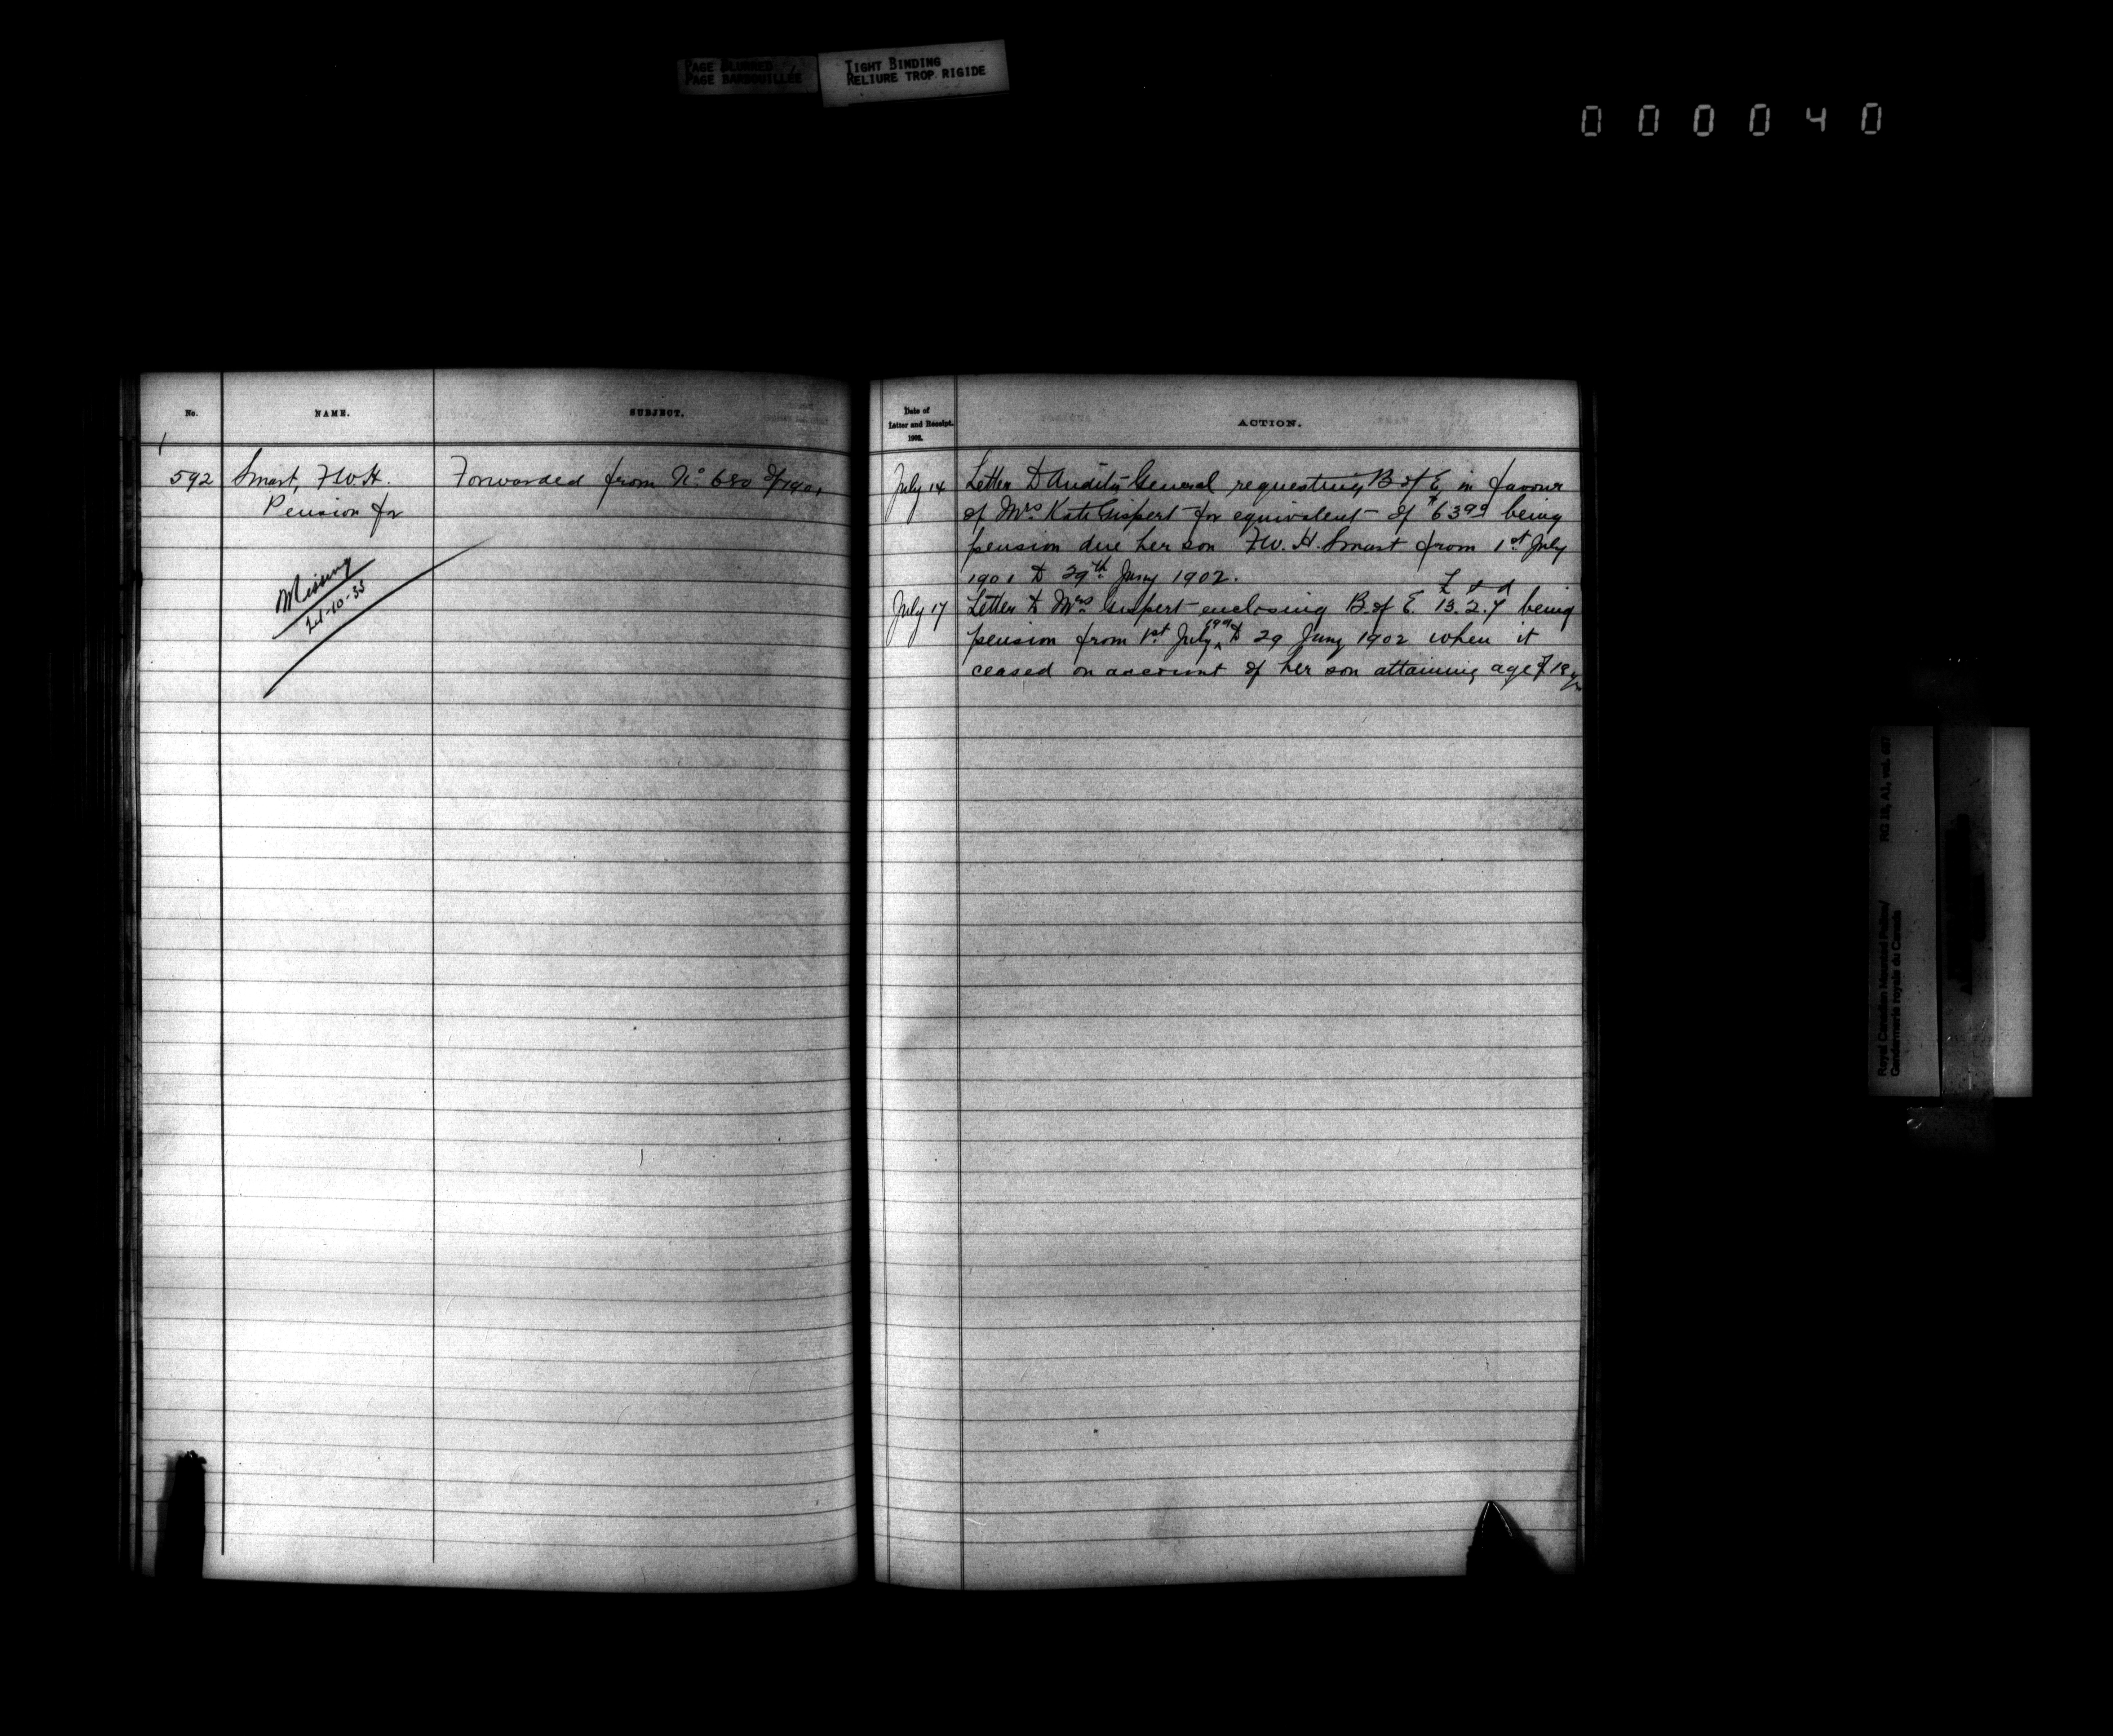 PAGE BLURRED
PAGE BARBOUILLÉE
TIGHT BINDING
RELIURE TROP RIGIDE
000040
No.
NAME.
SUBJECT.
592
Smart, F.W.H.
Pension for
Forwarded from No. 680 of 1901
Missing
21-10-35
Date of
Letter and Receipt.
1902.
ACTION.
July 14
Letter to Auditor General requesting B of E in favour
of Mrs. Kate Gispert for equivalent of $63.99 being
pension due her son F.W.H. Smart from 1st July
1901 to 29th Jany 1902.
£ s d
July 17
Letter to Mrs Gispert enclosing B. of E. 13.2.7 being
pension from 1st July 1901 to 29 Jany 1902 when it
ceased on account of her son attaining age of 18 yrs
RG 18, A1, vol. 687
Royal Canadian Mounted Police/
Gendarmerie royale du Canada